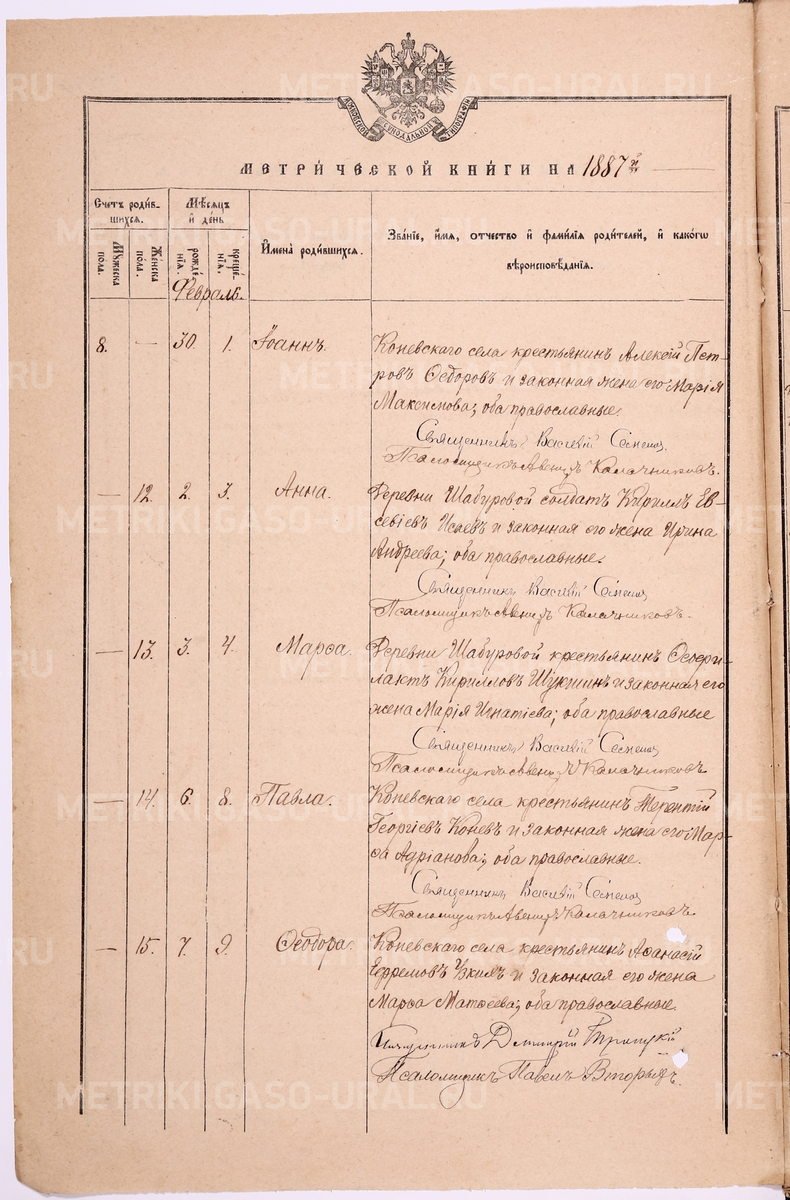 МОСКОВСКОЙ СИНОДАЛЬНОЙ ТИПОГРАФІИ
МЕТРИ́ЧЕСКОЙ КНИ́ГИ НА 1887 й
Счетъ роди́в-
шихся.
Мѣсяцъ
и де́нь
И҆мена̀ роди́вшихся.
Зва́ніе, и҆́мя, о҆́тчество и҆ фами́лія роди́телей, и҆ како́гѡ
вѣроисповѣ́данія.
Мꙋжеска
пола.
Же́нска
по́ла.
рожде́-
нія.
креще́-
нія.
Февраль.
8. — 30. 1. Іоаннъ. Коневскаго села крестьянинъ Алексій Пет-
ровъ Ѳедоровъ и законная жена его Марія
Максимова; оба православные.
Священникъ Василій
Псаломщикъ Калачниковъ.
— 12. 2. 3. Анна. Деревни Шабуровой солдатъ Кириллъ Ев-
севіевъ Исаевъ и законная его жена Ирина
Андреева; оба православные.
Священникъ Василій
Псаломщикъ Калачниковъ.
— 13. 3. 4. Марѳа. Деревни Шабуровой крестьянинъ Ѳеофи-
лактъ Кирилловъ Шукшинъ и законная его
жена Марія Игнатіева; оба православные
Священникъ Василій
Псаломщикъ Калачниковъ
— 14. 6. 8. Павла. Коневскаго села крестьянинъ Терентій
Георгіевъ Коневъ и законная жена его Мар-
ѳа Адріанова; оба православные.
Священникъ Василій
Псаломщикъ Калачниковъ.
— 15. 7. 9. Ѳеодора. Коневскаго села крестьянинъ Аѳанасій
Ефремовъ Узкихъ и законная его жена
Марѳа Матѳеева; оба православные.
Священникъ Дмитрій Троицкій
Псаломщикъ Павелъ Вторыхъ.
METRIKI.GASO-URAL.RU